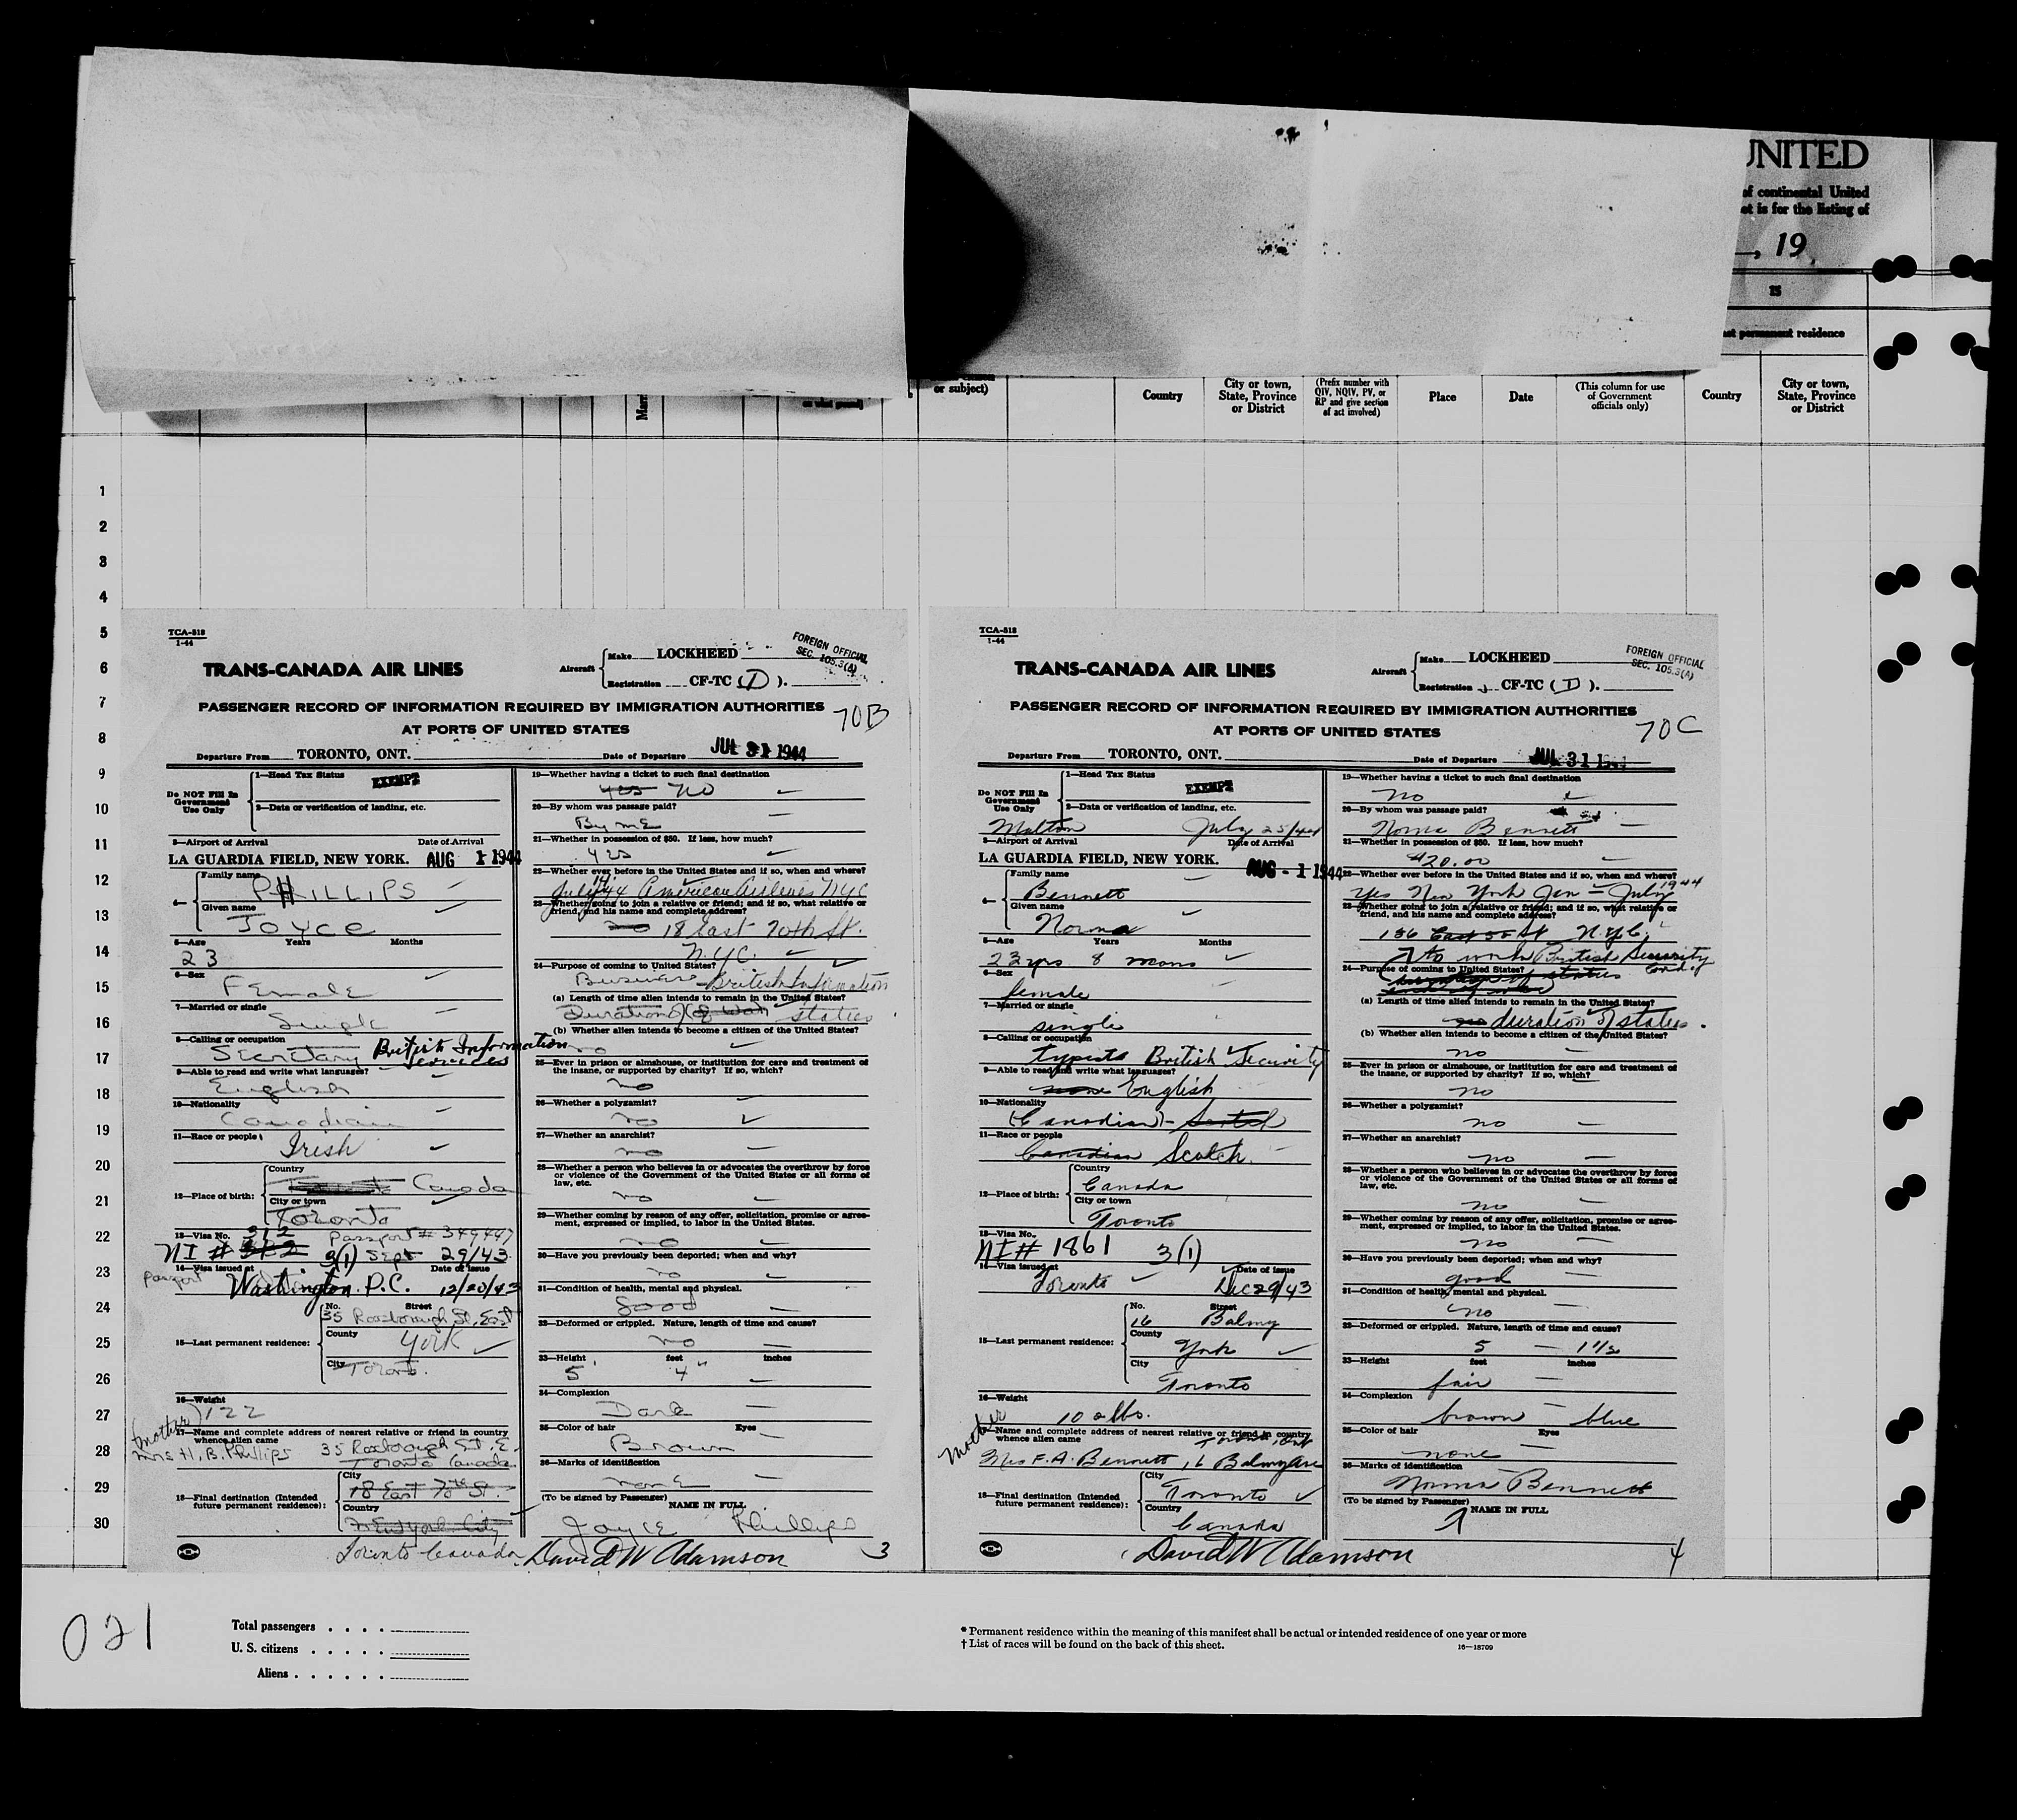 UNITED
of continental United
et is for the listing of
, 19
15
permanent residence
or subject)
Country
City or town,
State, Province
or District
(Prefix number with
QIV, NQIV, PV, or
RP and give section
of act involved)
Place
Date
(This column for use
of Government
officials only)
Country
City or town,
State, Province
or District
1
2
3
4
5
6
7
8
9
10
11
12
13
14
15
16
17
18
19
20
21
22
23
24
25
26
27
28
29
30
TCA-518
1-44
TRANS-CANADA AIR LINES
Aircraft
Make LOCKHEED
Registration CF-TC (D).
FOREIGN OFFICIAL
SEC. 105.3(A)
PASSENGER RECORD OF INFORMATION REQUIRED BY IMMIGRATION AUTHORITIES
AT PORTS OF UNITED STATES
70B
Departure From TORONTO, ONT.
Date of Departure JUL 31 1944
Do NOT Fill In
Government
Use Only
1—Head Tax Status
EXEMPT
2—Data or verification of landing, etc.
3—Airport of Arrival Date of Arrival
LA GUARDIA FIELD, NEW YORK. AUG 1 1944
4—
Family name
PHILLIPS
Given name
Joyce
5—Age Years Months
23
6—Sex
Female
7—Married or single
Single
8—Calling or occupation
Secretary British Information
Services
9—Able to read and write what languages?
English
10—Nationality
Canadian
11—Race or people
Irish
12—Place of birth:
Country
Canada
City or town
Toronto
13—Visa No. 312 Passport # 349447
NI # 312 3(1) Sept 29/43
14—Visa issued at Date of issue
passport Washington D.C. 12/20/43
15—Last permanent residence:
No. Street
35 Roxborough St. East
County
York
City
Toronto.
16—Weight
122
(mother)
17—Name and complete address of nearest relative or friend in country
whence alien came
Mrs H. B. Phillips 35 Roxborough St. E.
Toronto Canada
18—Final destination (Intended
future permanent residence):
City
18 East 70th St.
Country
New York City
Toronto Canada
19—Whether having a ticket to such final destination
yes no
20—By whom was passage paid?
By me
21—Whether in possession of $50. If less, how much?
yes
22—Whether ever before in the United States and if so, when and where?
July 44 American Airlines NYC
23—Whether going to join a relative or friend; and if so, what relative or
friend, and his name and complete address?
no 18 East 70th St.
N.Y.C.
24—Purpose of coming to United States?
Business British Information
(a) Length of time alien intends to remain in the United States?
Duration of (of war) status
(b) Whether alien intends to become a citizen of the United States?
no
25—Ever in prison or almshouse, or institution for care and treatment of
the insane, or supported by charity? If so, which?
no
26—Whether a polygamist?
no
27—Whether an anarchist?
no
28—Whether a person who believes in or advocates the overthrow by force
or violence of the Government of the United States or all forms of
law, etc.
no
29—Whether coming by reason of any offer, solicitation, promise or agree-
ment, expressed or implied, to labor in the United States.
no
30—Have you previously been deported; when and why?
no
31—Condition of health, mental and physical.
Good
32—Deformed or crippled. Nature, length of time and cause?
no
33—Height feet inches
5' 4"
34—Complexion
Dark
35—Color of hair Eyes
Brown
36—Marks of identification
none
(To be signed by Passenger) NAME IN FULL
Joyce Phillips
David W Adamson
3
TCA-518
1-44
TRANS-CANADA AIR LINES
Aircraft
Make LOCKHEED
Registration CF-TC (I).
FOREIGN OFFICIAL
SEC. 105.3(A)
PASSENGER RECORD OF INFORMATION REQUIRED BY IMMIGRATION AUTHORITIES
AT PORTS OF UNITED STATES
70C
Departure From TORONTO, ONT.
Date of Departure JUL 31 1944
Do NOT Fill In
Government
Use Only
1—Head Tax Status
EXEMPT
2—Data or verification of landing, etc.
Malton July 25/44
3—Airport of Arrival Date of Arrival
LA GUARDIA FIELD, NEW YORK. AUG - 1 1944
4—
Family name
Bennett
Given name
Norma
5—Age Years Months
23 yrs 8 mons
6—Sex
female
7—Married or single
single
8—Calling or occupation
typist British Security
9—Able to read and write what languages?
none English
10—Nationality
Canadian - Scotch
11—Race or people
Canadian Scotch.
12—Place of birth:
Country
Canada
City or town
Toronto
13—Visa No.
NI # 1861 3(1)
14—Visa issued at Date of issue
Toronto Dec 29/43
15—Last permanent residence:
No. Street
16 Balmy
County
York
City
Toronto
16—Weight
102 lbs.
Mother
17—Name and complete address of nearest relative or friend in country
whence alien came Toronto, Ont
Mrs F. A. Bennett 16 Balmy Ave
18—Final destination (Intended
future permanent residence):
City
Toronto
Country
Canada
19—Whether having a ticket to such final destination
no
20—By whom was passage paid?
Norma Bennett
21—Whether in possession of $50. If less, how much?
$20.00
22—Whether ever before in the United States and if so, when and where?
yes New York Jan - July 1944
23—Whether going to join a relative or friend; and if so, what relative or
friend, and his name and complete address?
136 East 55 St N.Y.C.
to work British Security Coord.
24—Purpose of coming to United States?
(a) Length of time alien intends to remain in the United States?
duration of status.
(b) Whether alien intends to become a citizen of the United States?
no
25—Ever in prison or almshouse, or institution for care and treatment of
the insane, or supported by charity? If so, which?
no
26—Whether a polygamist?
no
27—Whether an anarchist?
no
28—Whether a person who believes in or advocates the overthrow by force
or violence of the Government of the United States or all forms of
law, etc.
no
29—Whether coming by reason of any offer, solicitation, promise or agree-
ment, expressed or implied, to labor in the United States.
no
30—Have you previously been deported; when and why?
good
31—Condition of health, mental and physical.
no
32—Deformed or crippled. Nature, length of time and cause?
5 — 1 1/2
33—Height feet inches
fair
34—Complexion
brown blue
35—Color of hair Eyes
none
36—Marks of identification
Norma Bennett
(To be signed by Passenger) NAME IN FULL
David W Adamson
4
021
Total passengers . . . .
U. S. citizens . . . . .
Aliens . . . . . .
* Permanent residence within the meaning of this manifest shall be actual or intended residence of one year or more
† List of races will be found on the back of this sheet.
16—18709